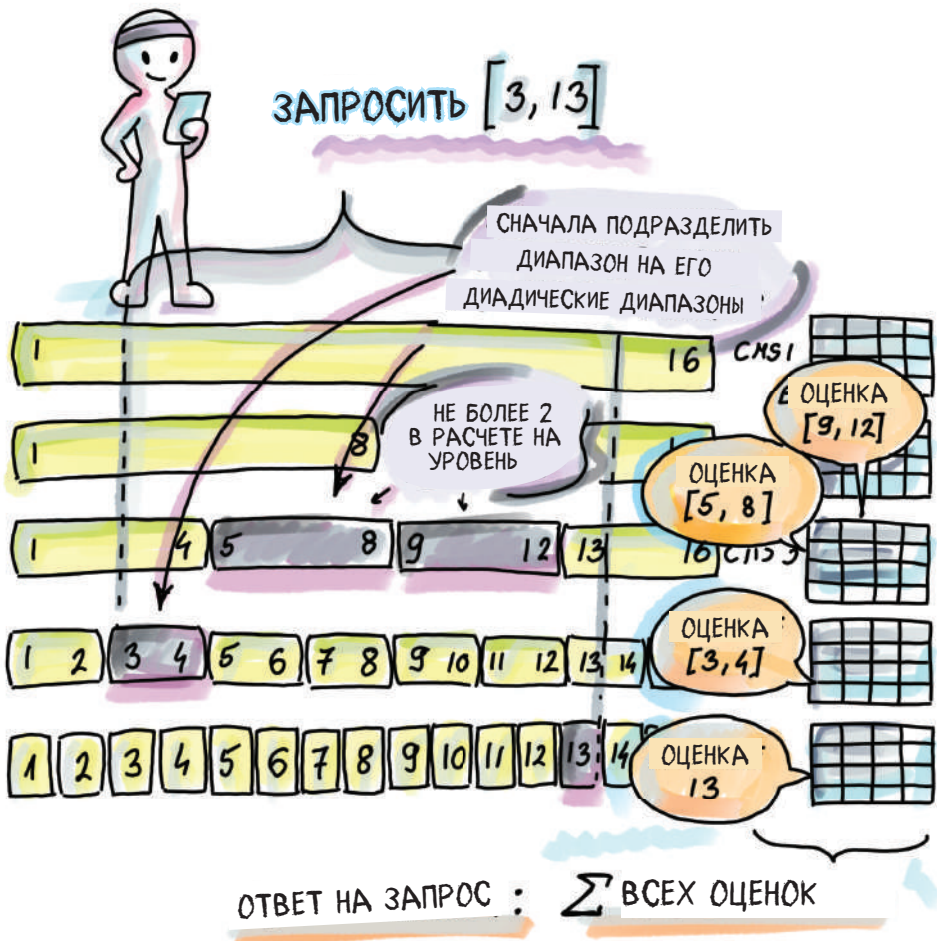 ЗАПРОСИТЬ [3, 13]
СНАЧАЛА ПОДРАЗДЕЛИТЬ
ДИАПАЗОН НА ЕГО
ДИАДИЧЕСКИЕ ДИАПАЗОНЫ
1 16 CMS1
ОЦЕНКА
[9, 12]
1 8
НЕ БОЛЕЕ 2
В РАСЧЕТЕ НА
УРОВЕНЬ
ОЦЕНКА
[5, 8]
1 4 5 8 9 12 13 16 CMS3
1 2 3 4 5 6 7 8 9 10 11 12 13 14
ОЦЕНКА
[3,4]
1 2 3 4 5 6 7 8 9 10 11 12 13 14
ОЦЕНКА
13
ОТВЕТ НА ЗАПРОС : Σ ВСЕХ ОЦЕНОК